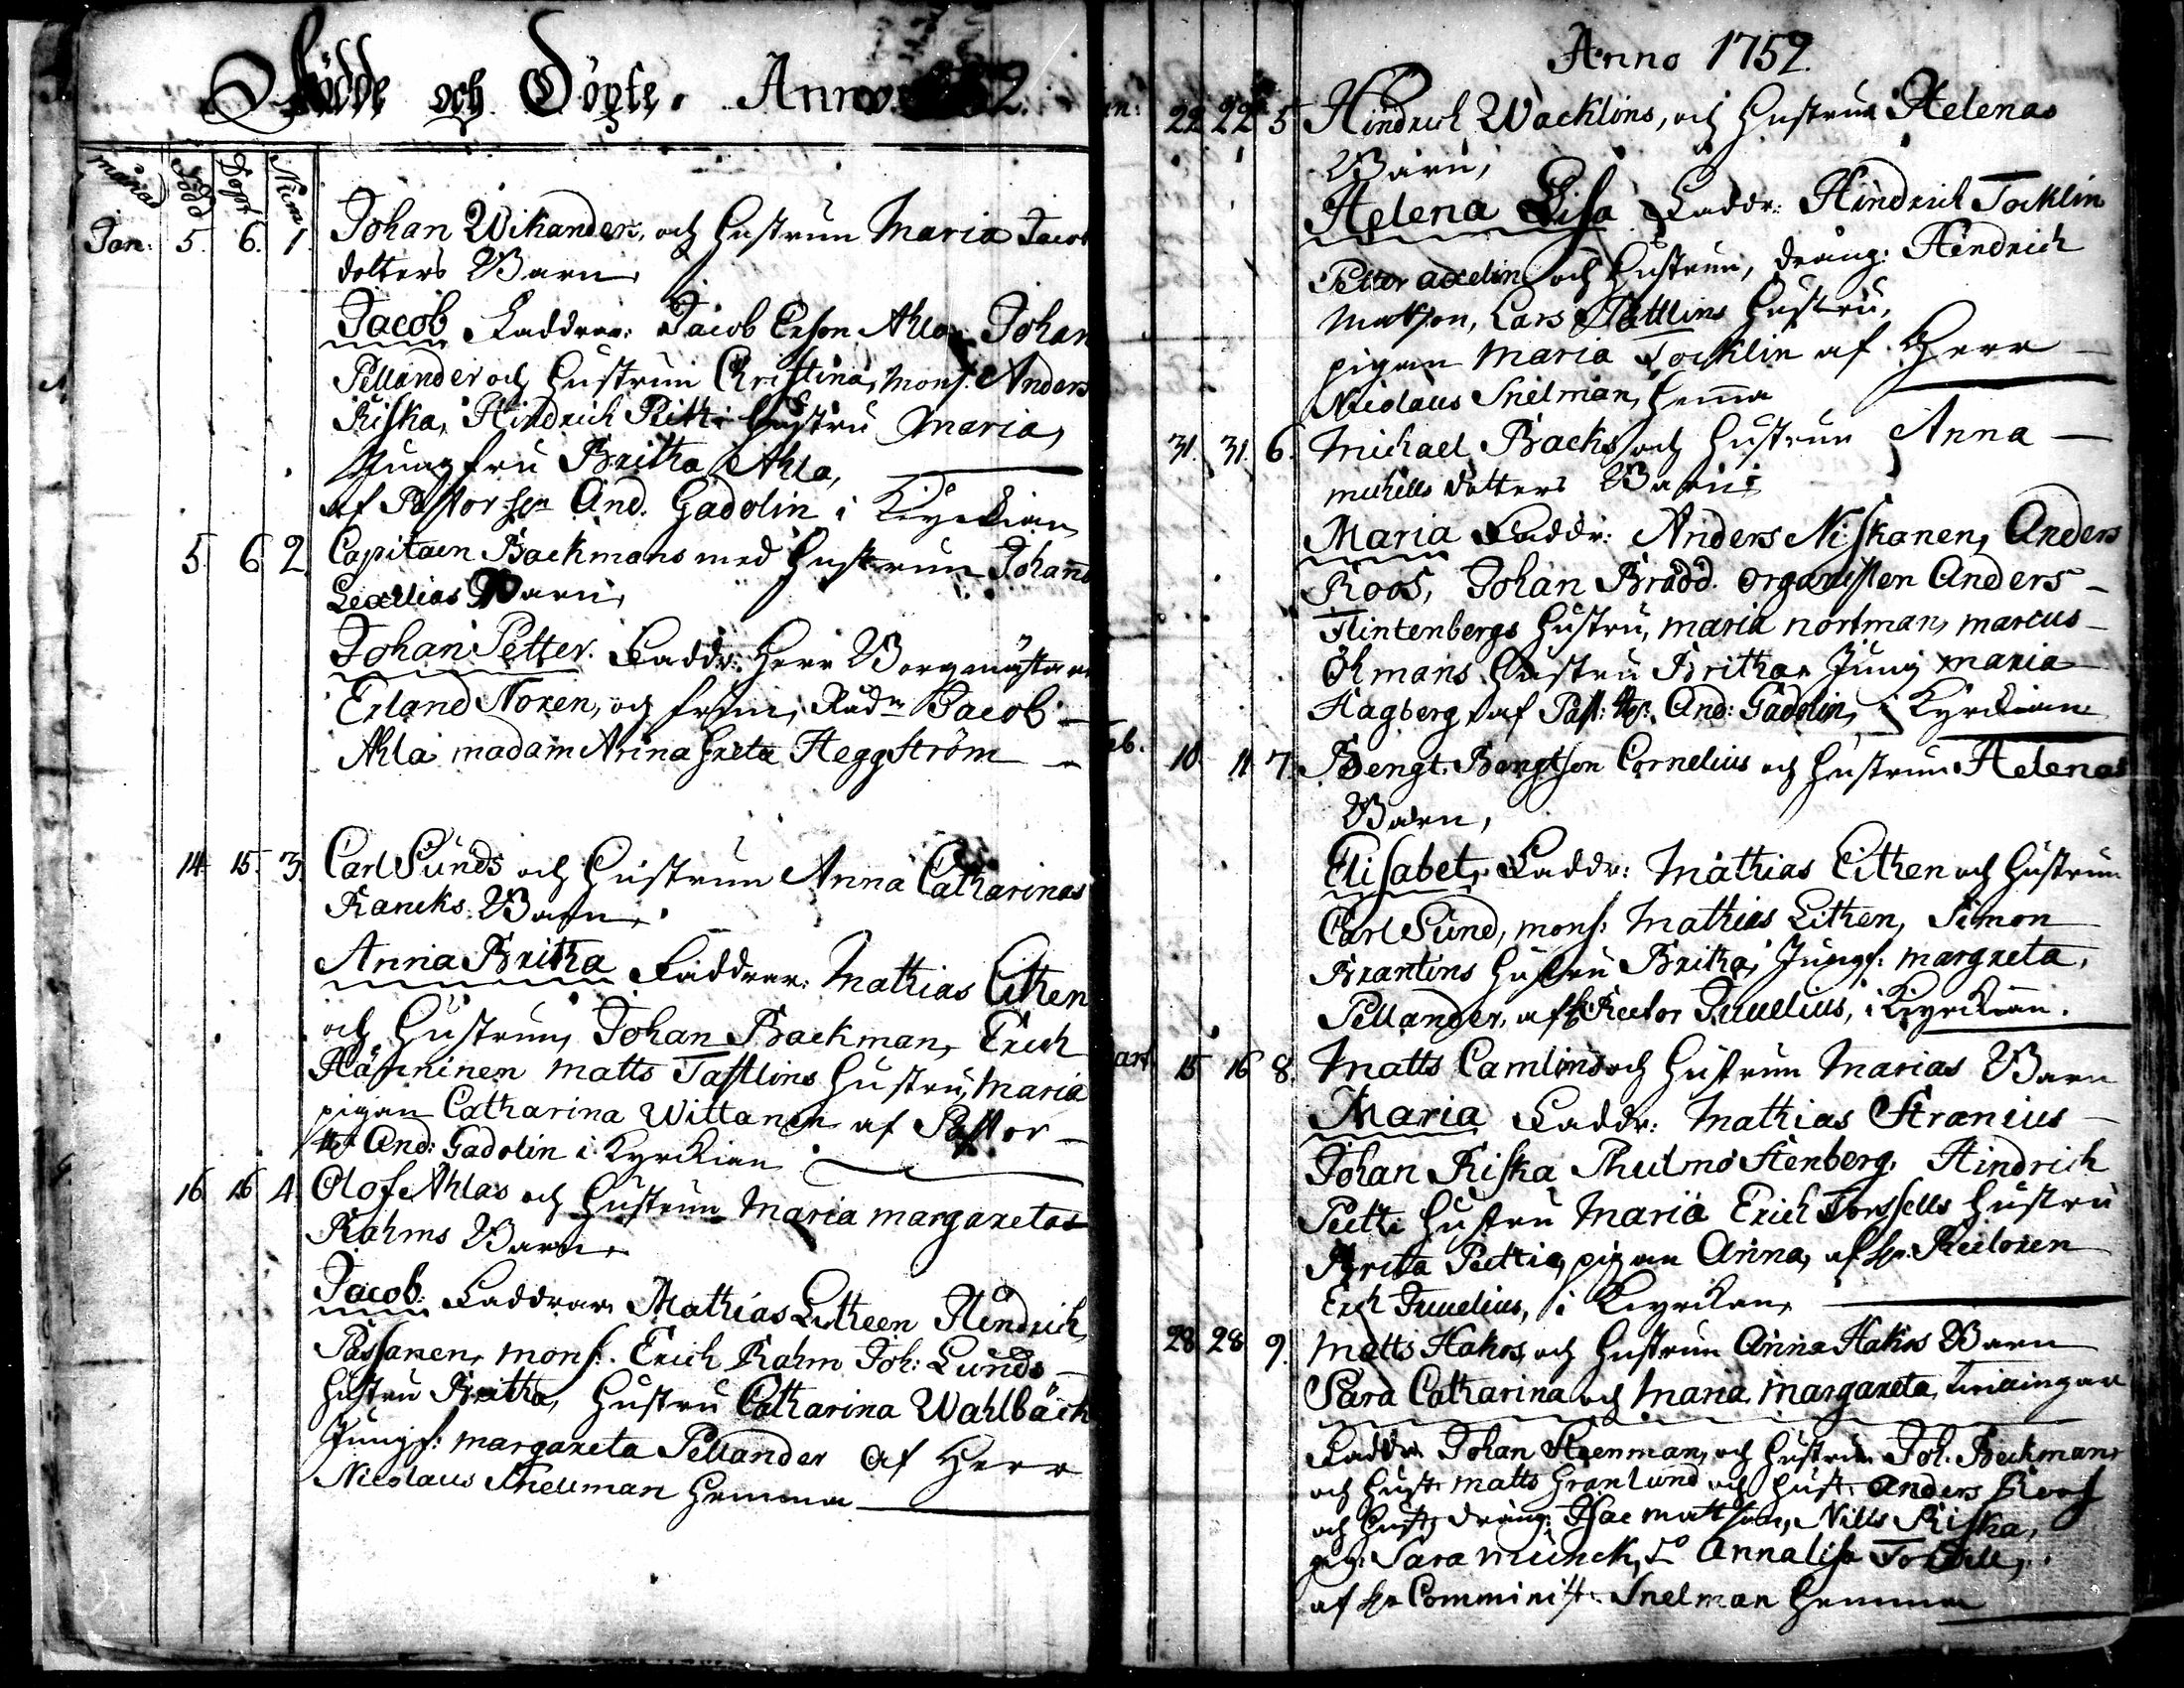 Födde och Döpte. Anno 1752.
månad Född Döpt Num
Jan: 5. 6. 1. Johan Wikanders, och hustrun Maria Jacobs
dotters Barn
Jacob Faddrar: Jacob Erson Ahla Johan
Pellander och hustrun Christina, Mons. Anders
Riska, Hindrich Peitti hustru Maria,
Jungfru Britha Ahla,
af Pastor hr And. Gadolin i Kyrckian
5 6 2. Capitaen Backmans med hustrun Johanna
Barn,
Johan Petter. Faddr: Herr Borgmästaren
Erland Noren, och frun, Rådm Jacob
Ahla madam Anna Greta Heggström
14 15. 3. Carl Sunds och hustrun Anna Catharinas
Rancks Barn,
Anna Britha Faddrar: Mathias Lithen
och hustrun, Johan Backman, Erich
Hänninen Matts Tastlins hustru, Maria
pigan Catharina Wittanen af Pastor
Hr And: Gadolin i Kyrckian
16 16 4. Olof Ahlas och hustrun Maria margaretas
Rahms Barn,
Jacob: Faddrar Mathias Litheen Hindrich
Passanen, mons. Erich Rahm Joh: Lunds
hustru Britha, hustru Catharina Wahlbäck
Jungf: margareta Pellander af Herr
Nicolaus Snellman hemma
Anno 1752.
22 22 5 Hindrich Wacklins, och hustrun Helenas
Barn,
Helena Lisa Faddr: Hindrich Tocklin
Petter axelin och hustrun, dräng: Hindrich
Matson, Lars Tattlins hustru,
pigan Maria Tocklin af Herr
Nicolaus Snelman, hema
31. 31. 6. Michael Backs och hustrun Anna
michells dotters Barn
Maria Faddr: Anders Niskanen, Anders
Roos, Johan Brådd. organisten Anders
Flintenbergs hustru, maria nortman, marcus
Öhmans hustru Britha, Jung maria
Hagberg, af Past: Hr: And: Gadolin, i Kyrckian
eb. 10. 11 7. Bengt Bengtson Cornelius och hustrun Helenas
Barn,
Elisabet, Faddr: Mathias Lithen och hustrun
Carl Sund, mons: Mathias Lithen, Simon
Brantins hustru Britha, Jungf: margreta,
Pellander, af h Rector Juvelius, i Kyrckian.
art 15 16 8. Matts Camlins och hustrun Marias Barn
Maria Faddr: Mathias Stranius
Johan Riska Thulmo Stenberg, Hindrich
Peitti hustru Maria Erich Forssells hustru
Brita Peittia, pigan Anna, af hr: Rectoren
Erich Juvelius, i Kyrckan,
28 28 9. Matts Hakos, och hustrun Anna Hakos Barn
Sara Catharina och Maria, Margareta, twillingar
Faddr Johan Steenman, och hustrun Joh. Backman
och hust: matts Granlund och hust: Anders Roos
och hust, dräng: Isac Mattson, Nills Riska,
pig: Sara Munck, Do Annalisa Forssell,
af hr Comminist: Snelman hemma